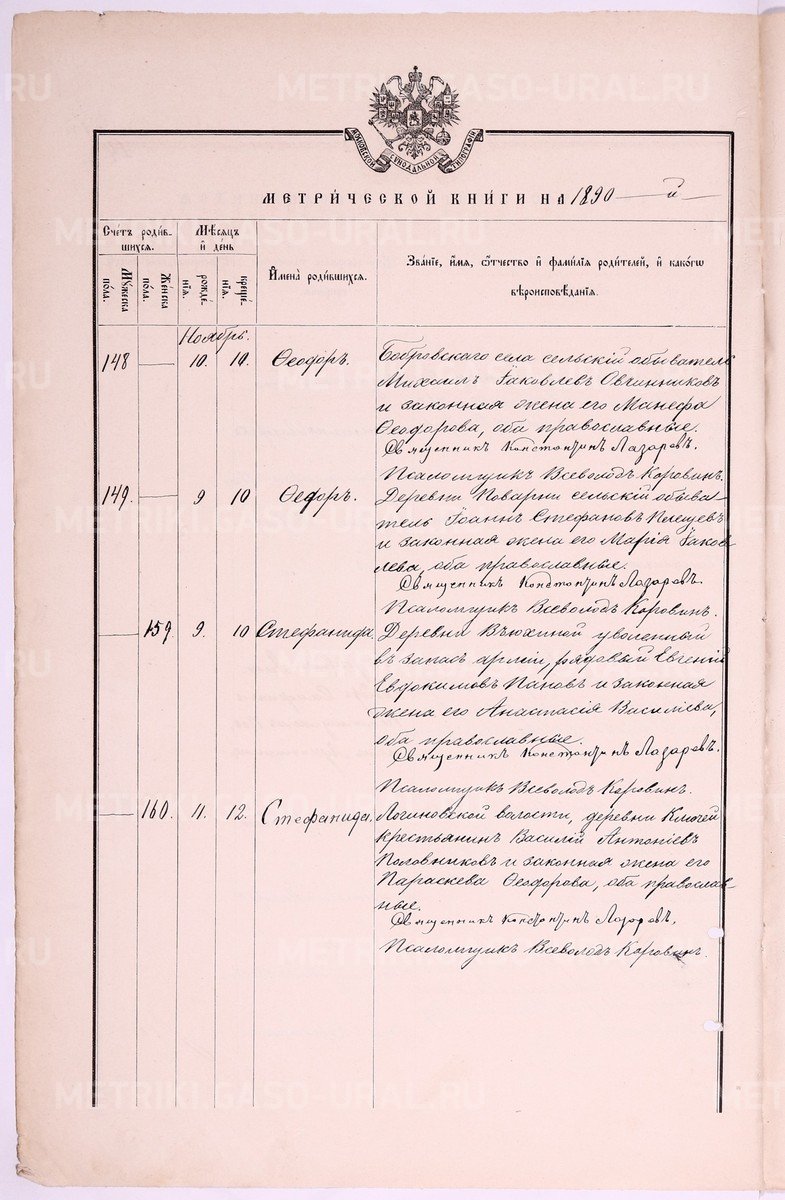 METRIKI.GASO-URAL.RU
МОСКОВСКОЙ СѴНОДАЛЬНОЙ ТИПОГРАФІИ
МЕТРИ́ЧЕСКОЙ КНИ́ГИ НА 1890 й
Счетъ роди́в-
шихся.
Мѣсяцъ
и҆ де́нь
Мꙋжеска
по́ла.
Же́нска
по́ла.
рожде́-
нїѧ.
креще́-
нїѧ.
И҆мена̀ роди́вшихся.
Зва́нїе, и҆́мѧ, ѻ҆́тчество и҆ фами́лїѧ роди́телей, и҆ како́гѡ
вѣроисповѣ́данїѧ.
Ноябрь.
148 — 10. 10. Ѳеодоръ. Бобровскаго села сельскій обыватель
Михаилъ Іаковлевъ Овчинниковъ
и законная жена его Манефа
Ѳеодорова, оба православные.
Священникъ Константинъ Лазаревъ.
Псаломщикъ Всеволодъ Коровинъ.
149. — 9 10 Ѳеодоръ. Деревни Поварни сельскій обыва
тель Іоаннъ Стефановъ Плещевъ
и законная жена его Марія Іаков
лева, оба православные.
Священникъ Константинъ Лазаревъ.
Псаломщикъ Всеволодъ Коровинъ.
— 159. 9. 10 Стефанида. Деревни Вьюхиной уволенный
въ запасъ арміи, рядовый Евгеній
Евдокимовъ Пановъ и законная
жена его Анастасія Василіева,
оба православные.
Священникъ Константинъ Лазаревъ.
Псаломщикъ Всеволодъ Коровинъ.
— 160. 11. 12. Стефанида. Логиновской волости, деревни Ключей
крестьянинъ Василій Антоніевъ
Половниковъ и законная жена его
Параскева Ѳеодорова, оба православ-
ные.
Священникъ Константинъ Лазаревъ.
Псаломщикъ Всеволодъ Коровинъ.